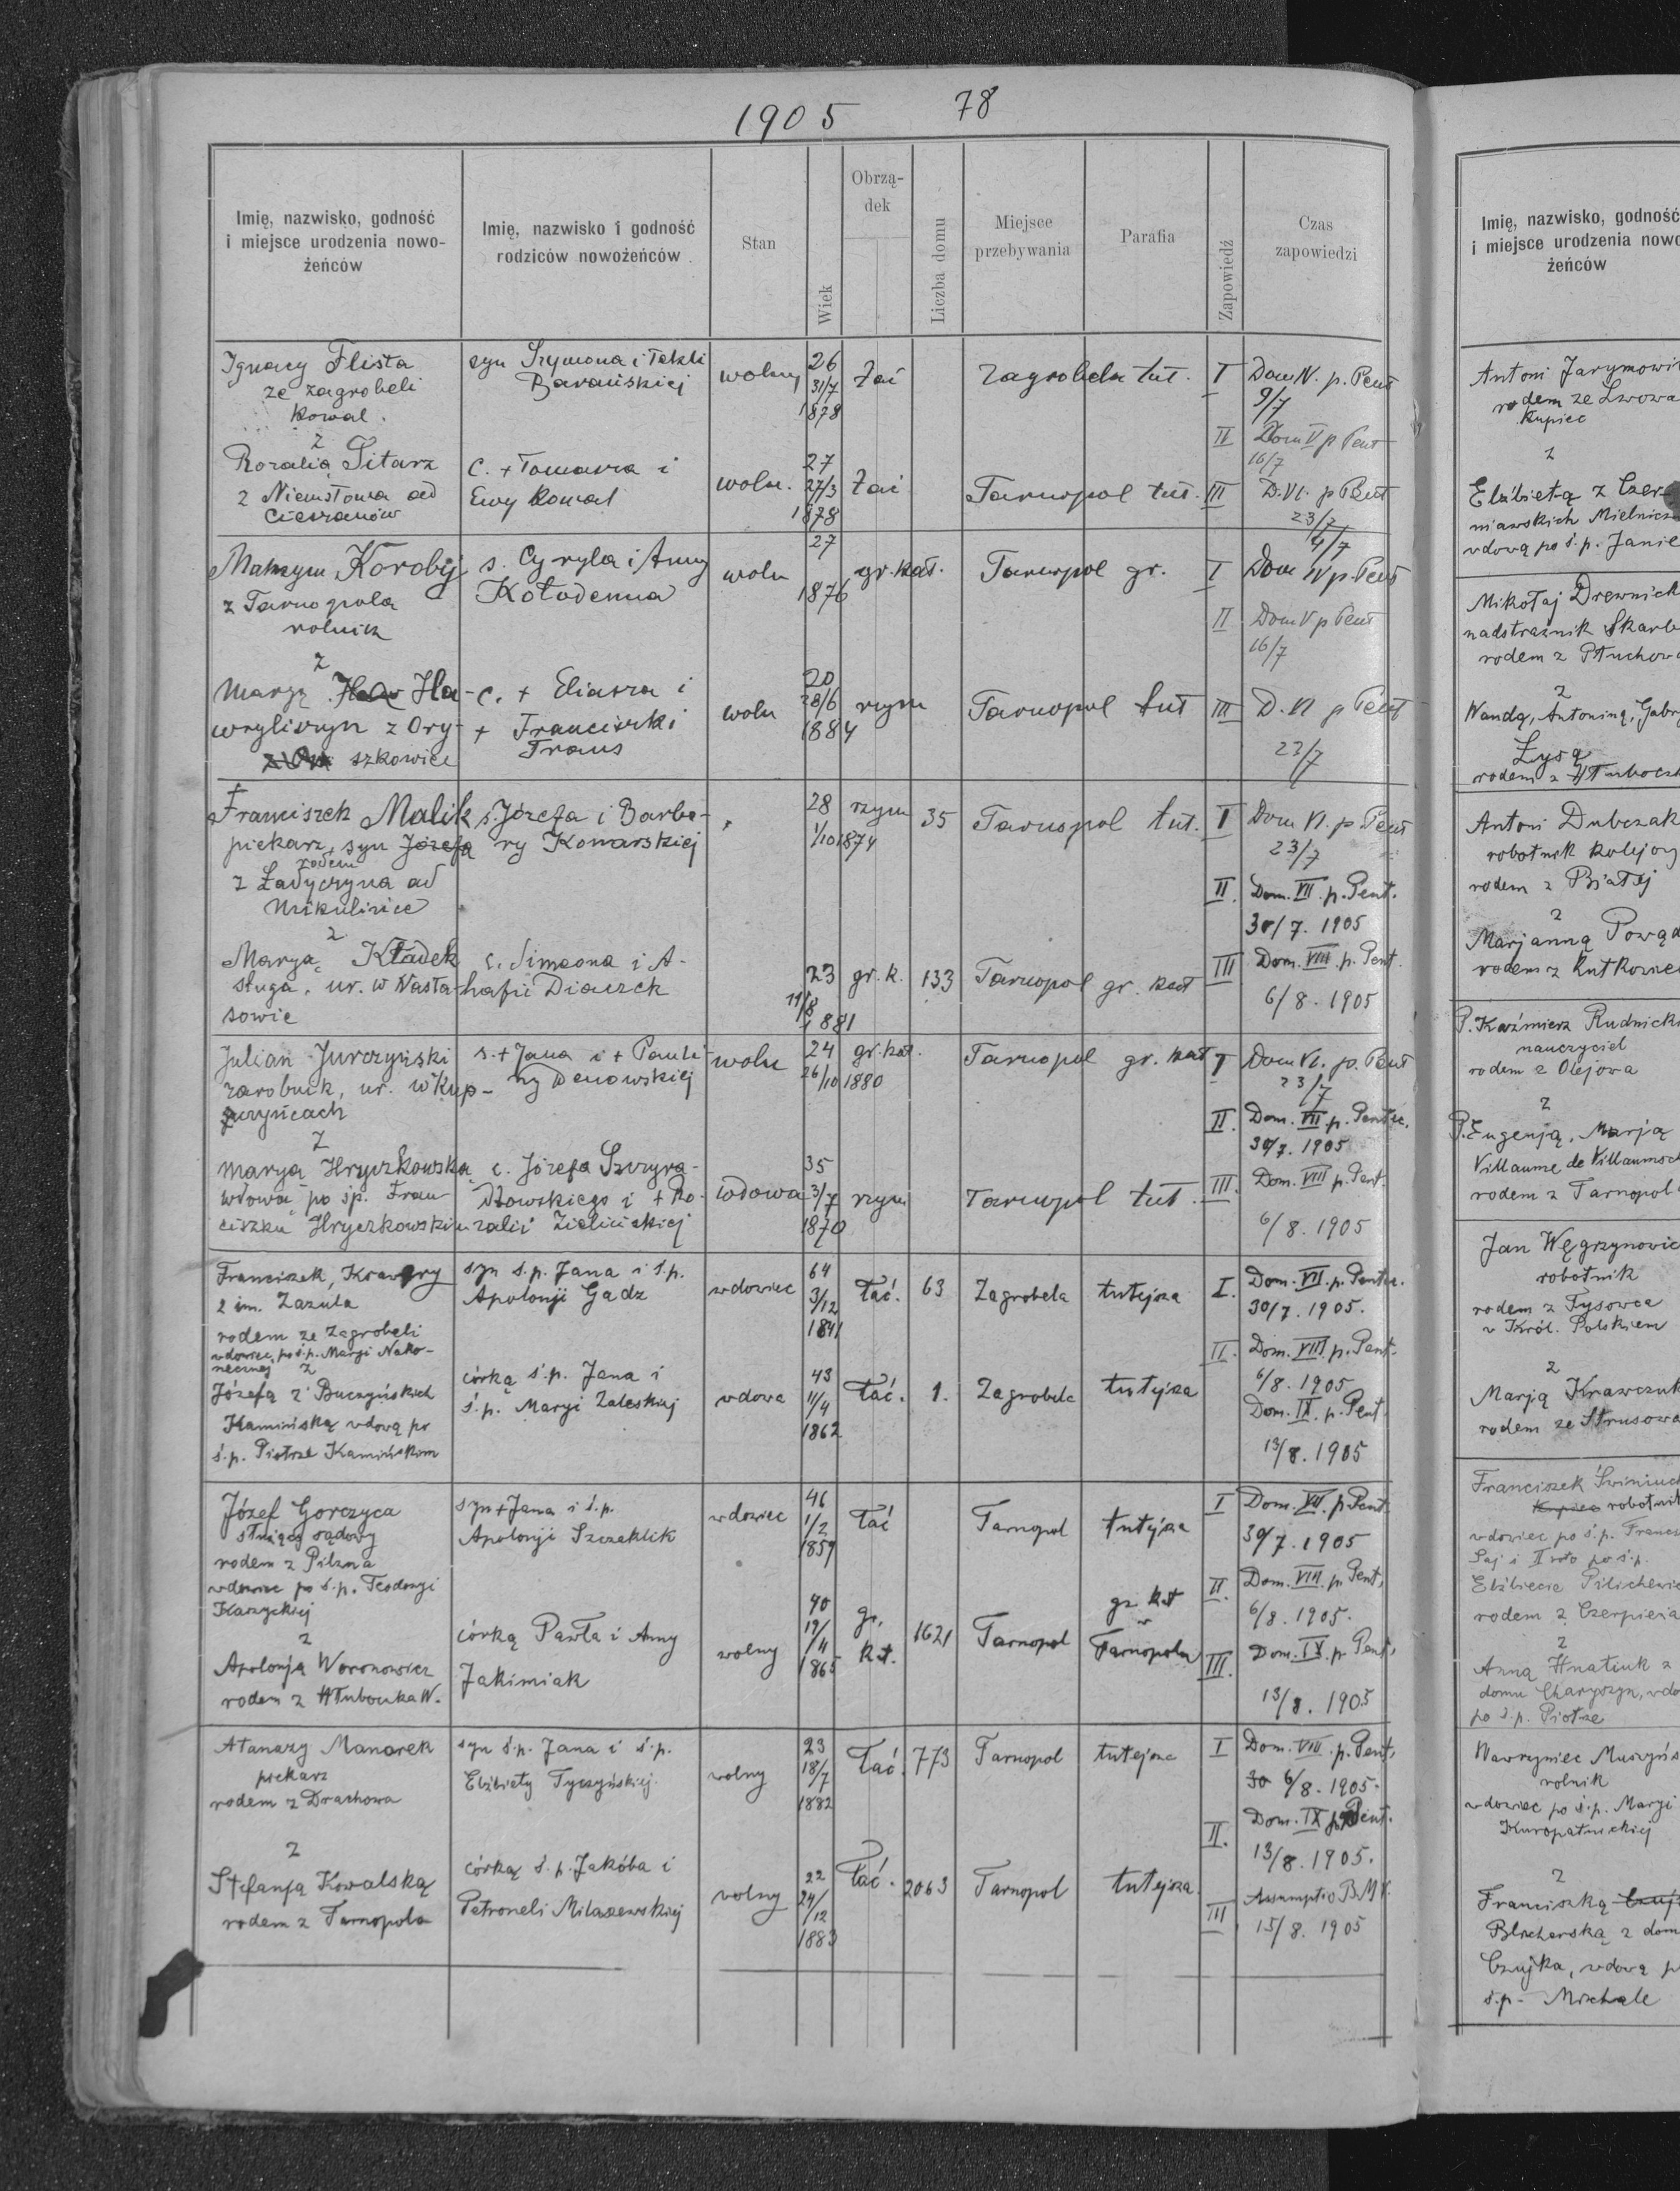 1905
78
Imię, nazwisko, godność i miejsce urodzenia nowożeńców
Imię, nazwisko i godność rodziców nowożeńców
Stan
Wiek
Obrządek
Liczba domu
Miejsce przebywania
Parafia
Zapowiedź
Czas zapowiedzi
Ignacy Flista
ze Zagrobeli
kowal.
syn Szymona i Tekli
Barańskiej
wolny
26
31/7
1878
Łać
Zagrobela tut.
I
Dom IV. p. Pent
9/7
II
Dom V p Pent
16/7
z
Rozalią Sitarz
z Niemstowa ad
Cieszanów
C. + Tomasza i
Ewy Kowal
woln.
27
27/3
1878
Łać
Tarnopol tut.
III
D. VI. p Pent
23/7
Maksym Korobij
z Tarnopola
rolnik
s. Cyryla i Anny
Kołodenna
woln
27
1876
gr. kat.
Tarnopol gr.
I
4/7
Dom IV p. Pent
II
Dom V p Pent
16/7
z
Maryą Ha-
wryliszyn z Ory-
szkowiec
c. + Eliasza i
+ Franciszki
Traus
woln
20
28/6
1884
rzym
Tarnopol tut
III
D. VI p Pent
23/7
Franciszek Malik
piekarz, syn Józefa
rodem
z Ładyczyna ad
Mikulińce
s. Józefa i Barba-
ry Komarskiej
28
1/10 1874
rzym
35
Tarnopol tut.
I
Dom VI. p Pent
23/7
II.
Dom. VII. p. Pent.
30/7. 1905
z
Maryą Kładek
sługa, ur. w Nasta-
sowie
c. Simeona i A-
hafii Diaczek
23
11/8
1881
gr. k.
133
Tarnopol gr. kat
III
Dom. VIII p. Pent.
6/8. 1905
Julian Jurczyński
zarobnik, ur. w Kup-
czyńcach
s. + Jana i + Pauli-
ny Denowskiej
woln
24
26/10 1880
gr. kat.
Tarnopol gr. kat
I
Dom VI. p. Pent
23/7
II.
Dom. VII. p. Pentec.
30/7. 1905
z
Maryą Hryczkowską
wdową po śp. Fran-
ciszku Hryczkowskim
c. Józefa Szczyra-
dłowskiego i + Ro-
zalii Zielińskiej
wdowa
35
3/7
1870
rzym
Tarnopol tut.
III.
Dom. VIII p. Pent.
6/8. 1905
Franciszek, Krawgry
2 im. Zazula
rodem ze Zagrobeli
wdowiec po ś.p. Maryi Nako-
necznej z
syn ś.p. Jana i ś.p.
Apolonji Gadz
wdowiec
64
3/12
1841
Łać.
63
Zagrobela
tutejsza
I.
Dom. VII. p. Pentec.
30/7. 1905.
II.
Dom. VIII. p. Pent.
6/8. 1905
Józefą z Buczyńskich
Kamińską wdową po
ś.p. Piotrze Kamińskom
córką ś.p. Jana i
ś.p. Maryi Zaleskiej
wdowa
43
11/4
1862
Łać.
1.
Zagrobela
tutejsza
Dom. IX. p. Pent.
13/8. 1905
Józef Gorczyca
służący sądowy
rodem z Pilzna
wdowiec po ś.p. Teodozji
Kaszyckiej
syn + Jana i ś.p.
Apolonji Szczeklik
wdowiec
46
1/2
1859
Łać
Tarnopol
tutejsza
I
Dom. VII. p. Pent.
30/7. 1905
II.
Dom. VIII. p. Pent,
6/8. 1905.
z
Apolonją Woronowicz
rodem z Hłuboczka W.
córką Pawła i Anny
Jakimiak
wolny
40
19/4
1865
gr. kat.
1621
Tarnopol
gr. kat
w
Tarnopolu
III.
Dom. IX. p. Pent,
13/8. 1905
Atanazy Manarek
piekarz
rodem z Drachowa
syn ś.p. Jana i ś.p.
Elżbiety Tyczyńskiej.
wolny
23
18/7
1882
Łać.
773
Tarnopol
tutejsza
I
Dom. VIII. p. Pent,
30 6/8. 1905.
II.
Dom. IX p. Pent.
13/8. 1905.
z
Stefanją Kowalską
rodem z Tarnopola
córką ś.p. Jakóba i
Petroneli Milaszewskiej
wolny
22
24/12
1883
Łać.
2063
Tarnopol
tutejsza
III
Assumptio B.M.V.
15/8. 1905
Imię, nazwisko, godność
i miejsce urodzenia nowo
żeńców
Antoni Jarymowi
rodem ze Lwowa
kupiec
z
Elżbietą z Czer-
niawskich
wdową po ś.p. Janie
Mikołaj Drewnick
nadstrażnik Skarb
rodem z Płuchow
z
Wandą, Antoniną, Gabr
Łysą
rodem z Hłubocz
Antoni Dubczak
robotnik kolejow
rodem z Białej
z
Marjanną Powąd
rodem z Rutkowie
P. Kaźmierz Rudnicki
nauczyciel
rodem z Olejowa
z
P. Eugenją, Marją
Villaume de Villaumoch
rodem z Tarnopola
Jan Węgrzynowic
robotnik
rodem z Tysowca
w Król. Polskiem
z
Marją Krawczuk
rodem ze Strusowa
Franciszek Świniuch
Kupiec robotnik
wdowiec po ś.p. Franc
Saj i II voto po ś.p.
Elżbiecie Pilichiewic
rodem z Czerpiena
z
Anną Hnatiuk z
domu Charyszyn, wdo
po ś.p. Piotrze
Wawrzyniec Muszyńs
rolnik
wdowiec po ś.p. Maryi
Kuropatnickiej
z
Franciszką Czuj
Blicharską z dom
Czujka, wdową p
ś.p. Michale